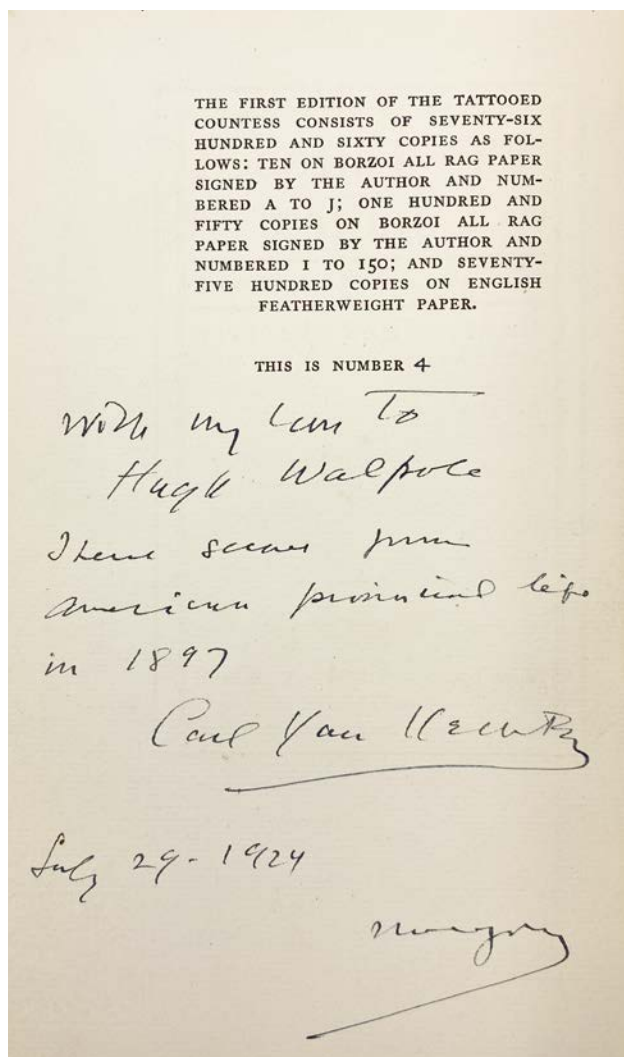 THE FIRST EDITION OF THE TATTOOED
COUNTESS CONSISTS OF SEVENTY-SIX
HUNDRED AND SIXTY COPIES AS FOL-
LOWS: TEN ON BORZOI ALL RAG PAPER
SIGNED BY THE AUTHOR AND NUM-
BERED A TO J; ONE HUNDRED AND
FIFTY COPIES ON BORZOI ALL RAG
PAPER SIGNED BY THE AUTHOR AND
NUMBERED 1 TO 150; AND SEVENTY-
FIVE HUNDRED COPIES ON ENGLISH
FEATHERWEIGHT PAPER.
THIS IS NUMBER 4
With my love To
Hugh Walpole
These scenes from
American provincial life
in 1897
Carl Van Vechten
July 29-1924